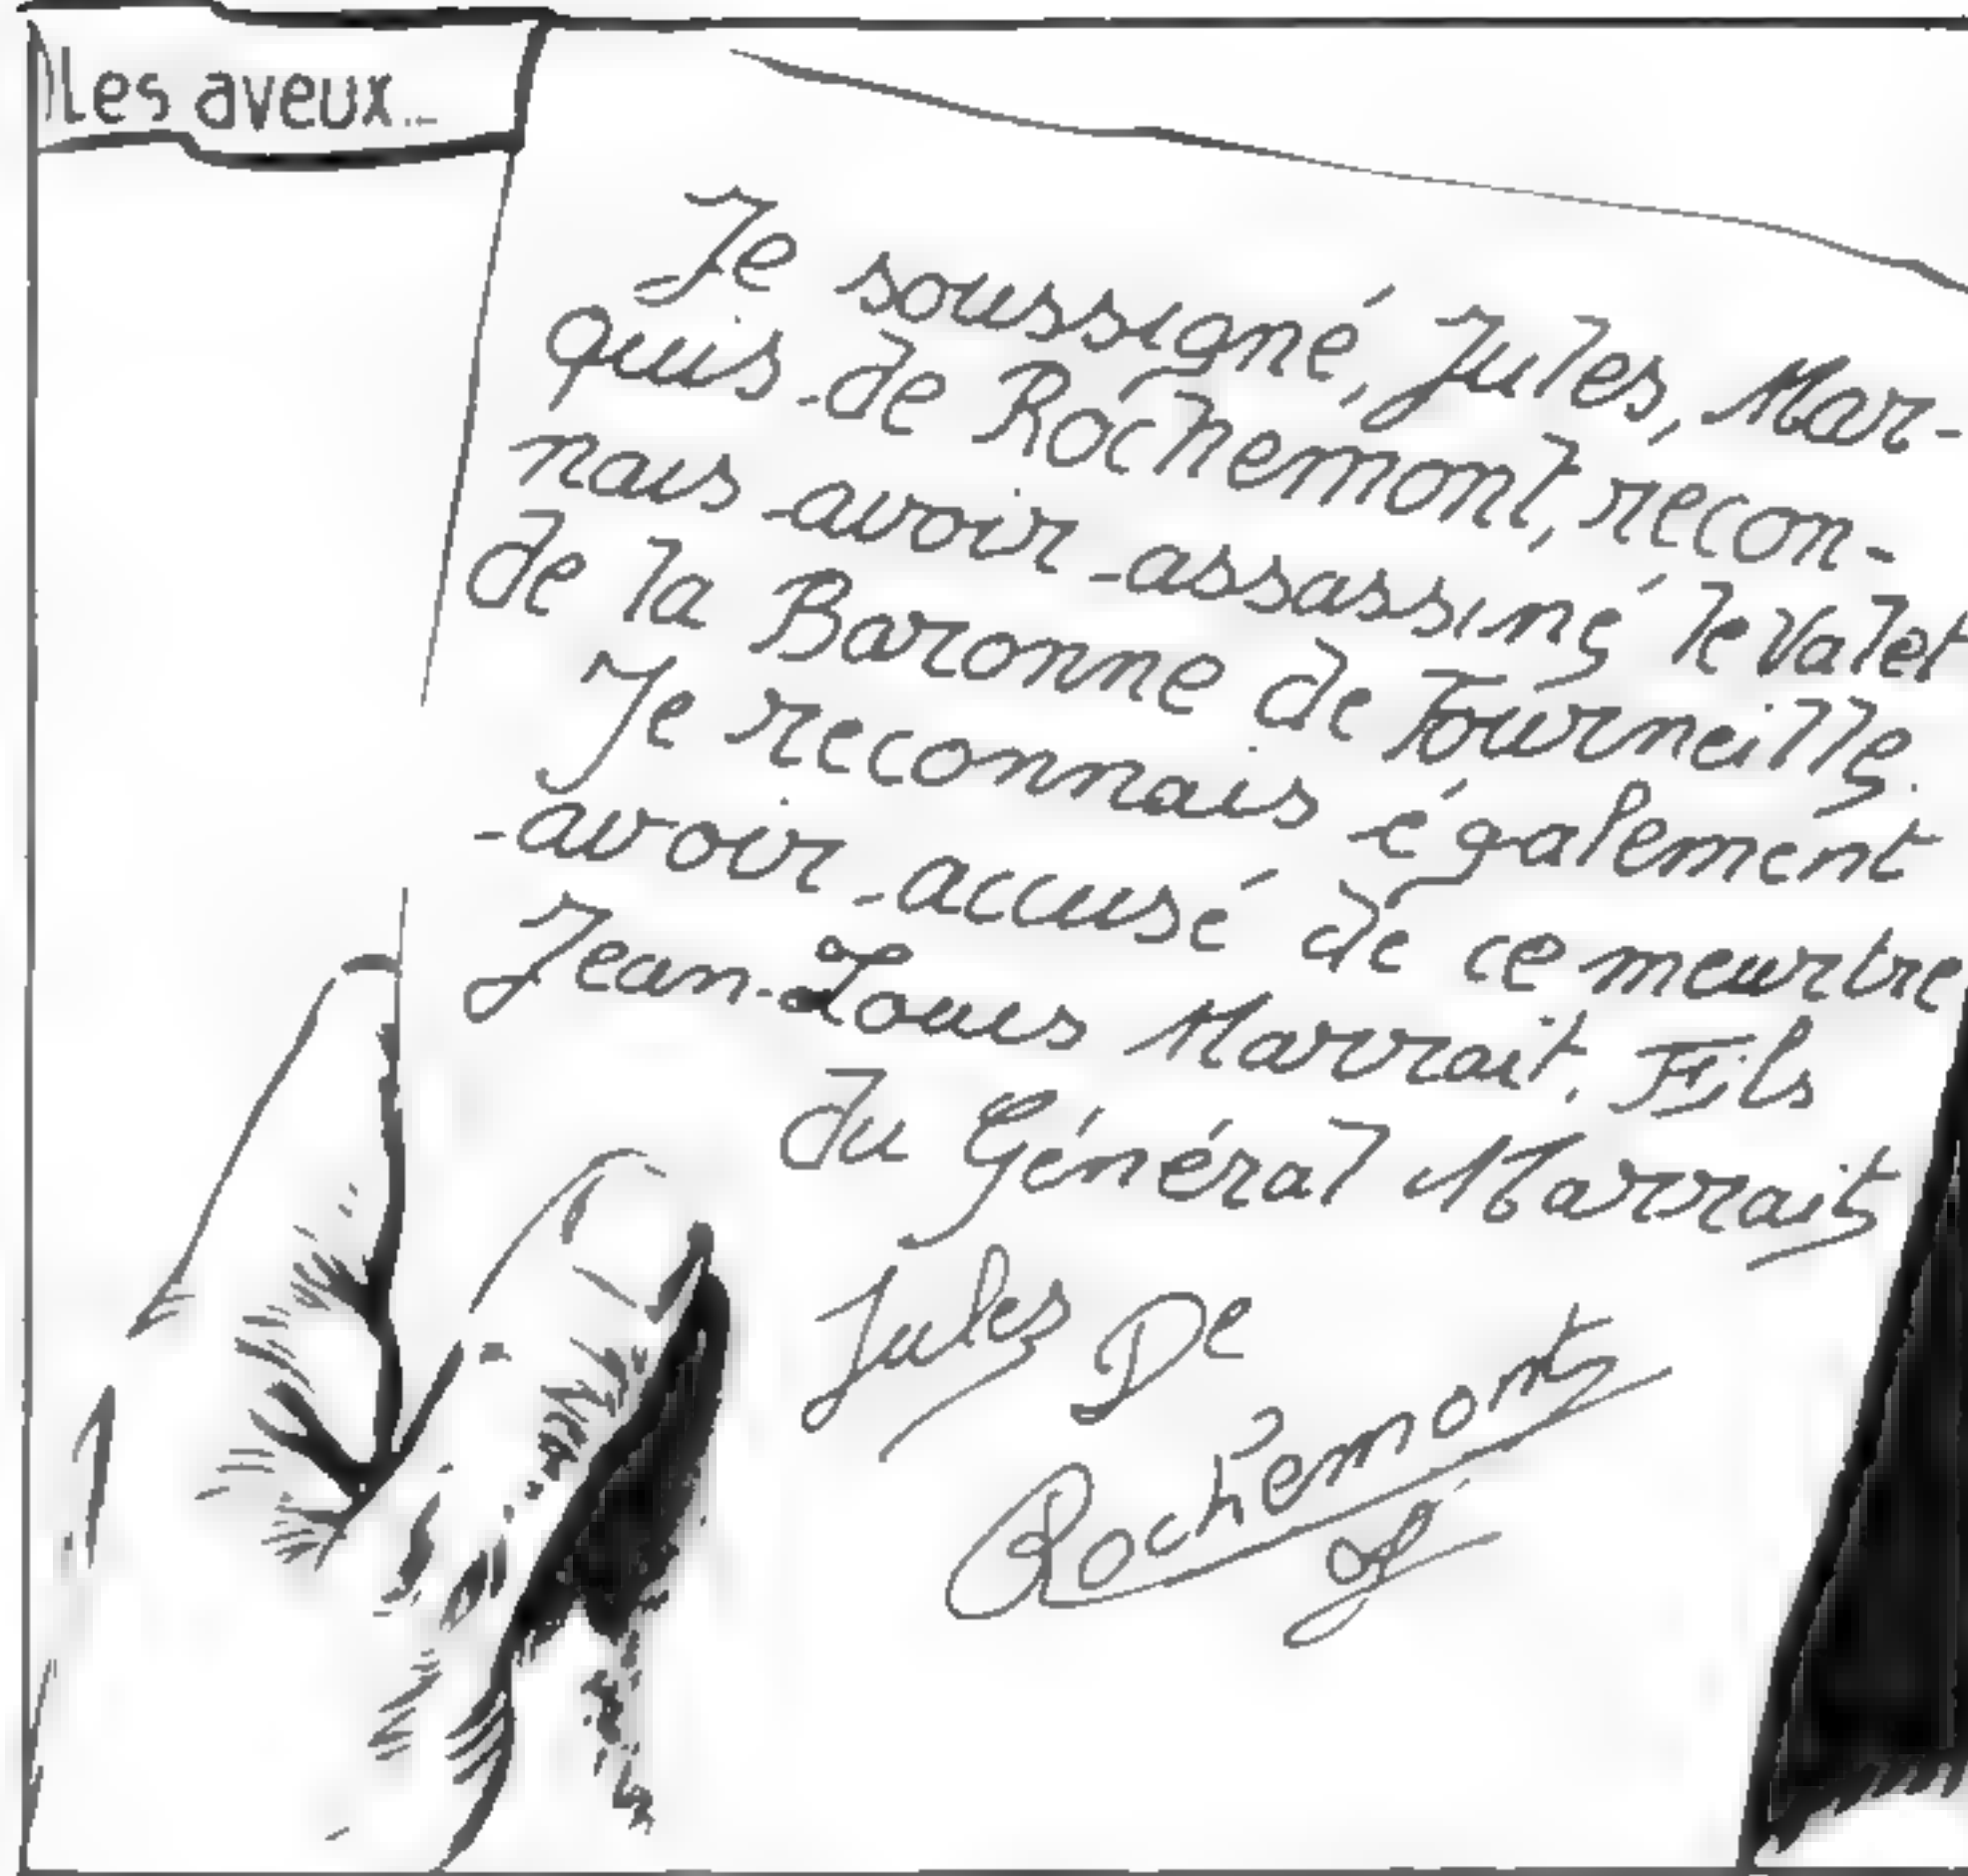 Les aveux...
Je soussigné, Jules, Mar-
quis de Rochemont, recon-
nais avoir assassiné le Valet
de la Baronne de Tourneille.
Je reconnais également
avoir accusé de ce meurtre
Jean-Louis Marrait, Fils
du Général Marrait
Jules De
Rochemont